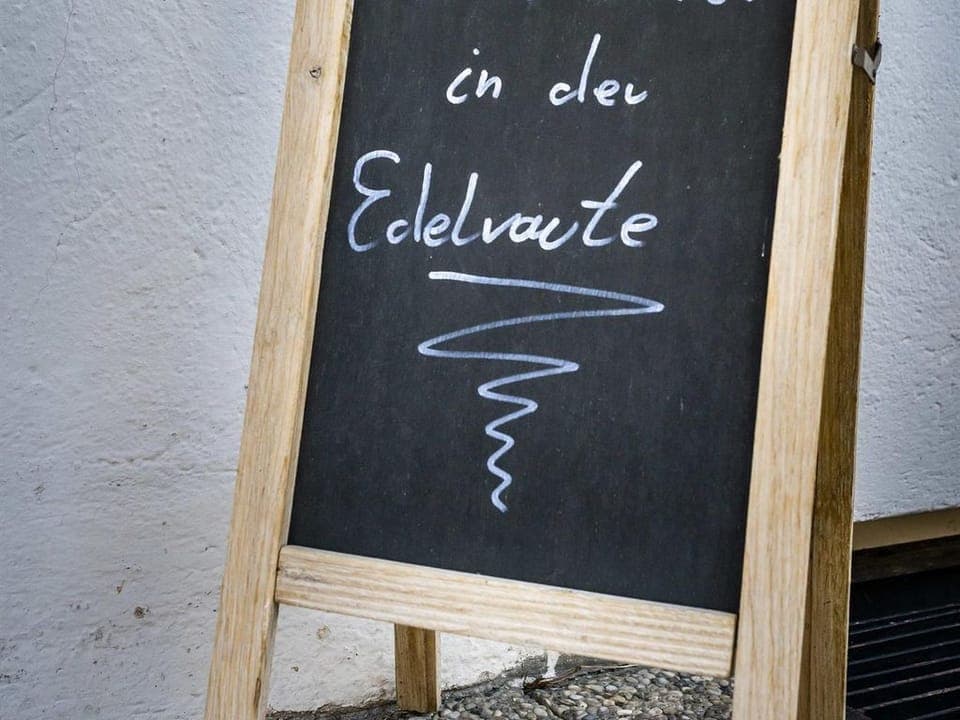 in der
Edelraute